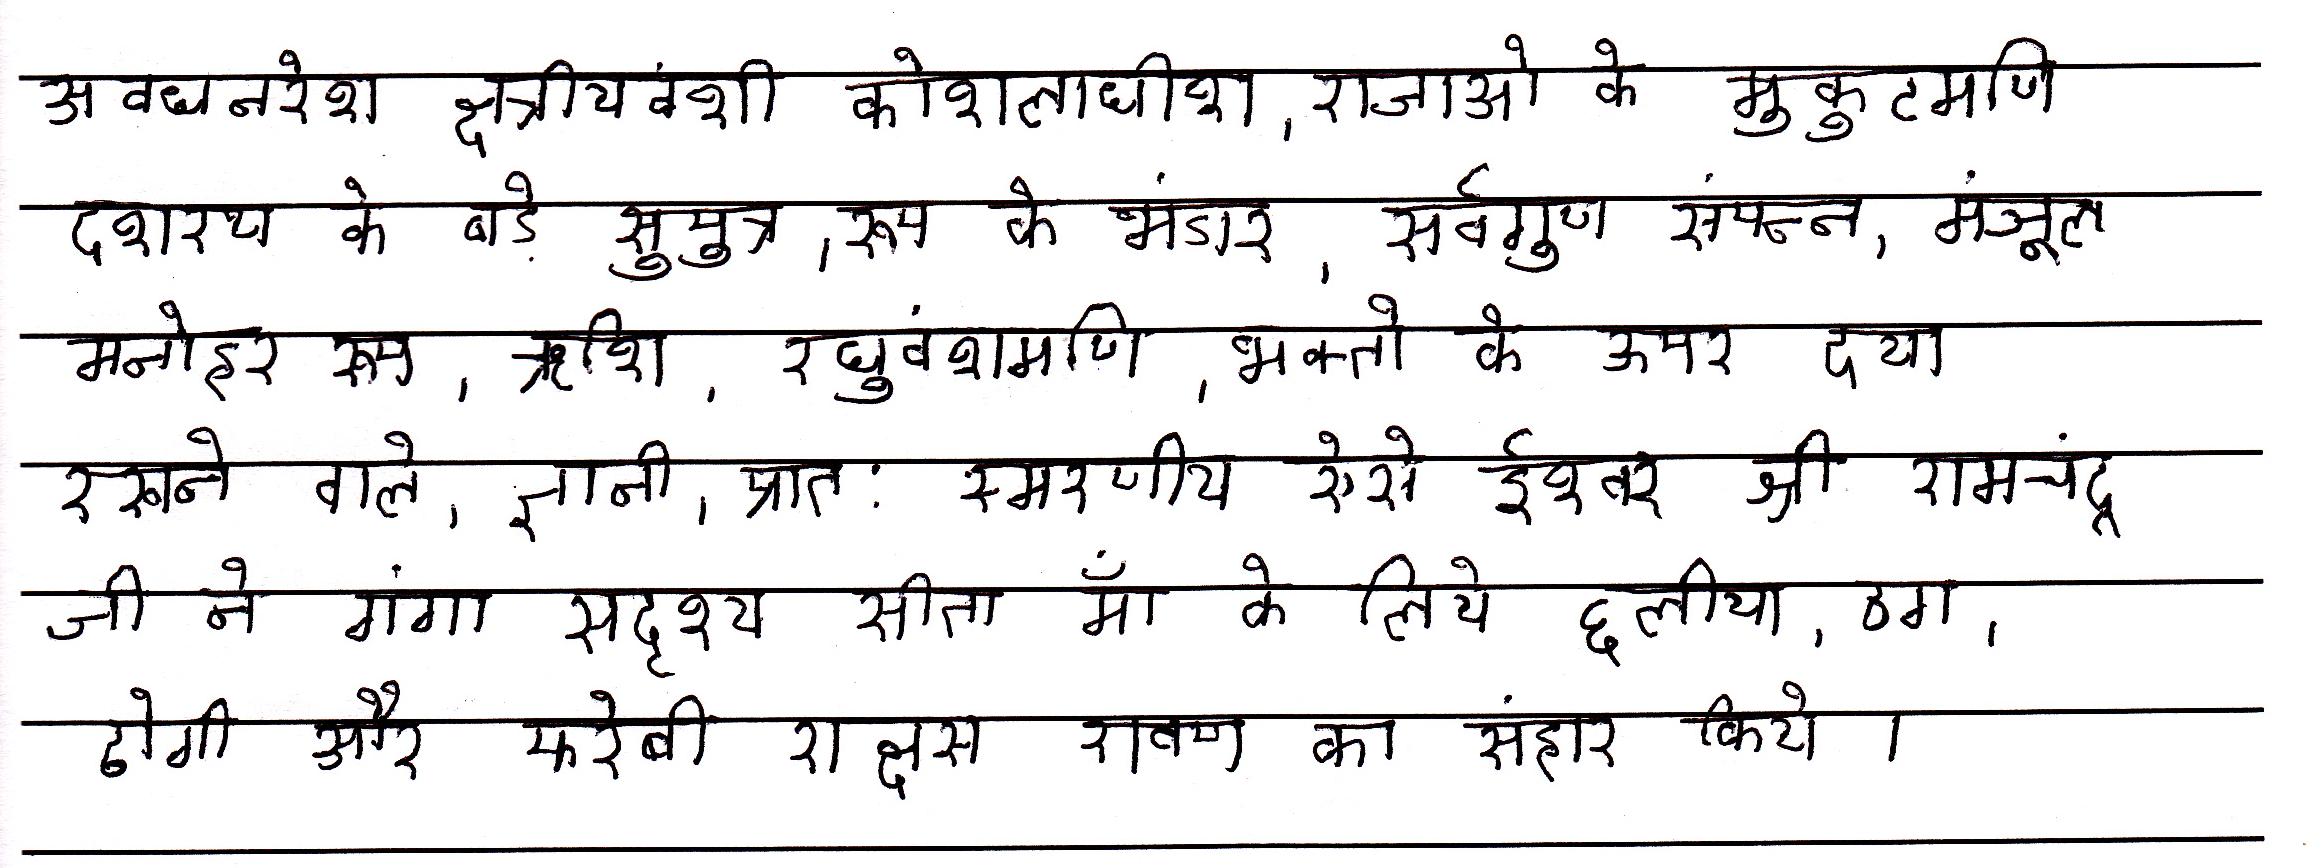 अवधनरेश क्षत्रीयवंशी कोशलाधीश, राजाओ के मुकुटमणि
दशरथ के बडे़ सुपुत्र, रूप के भंडार, सर्वगुण संपन्न, मंजूल
मनोहर रूप, ॠशि, रघुवंशमणि, भक्तो के ऊपर दया
रखने वाले, ज्ञानी, प्रात: स्मरणीय ऐसे ईश्वर श्री रामचंद्र
जी ने गंगा सदृश्य सीता माँ के लिये छलीया, ठग,
ढोगी और फरेबी राक्षस रावण का संहार किये ।